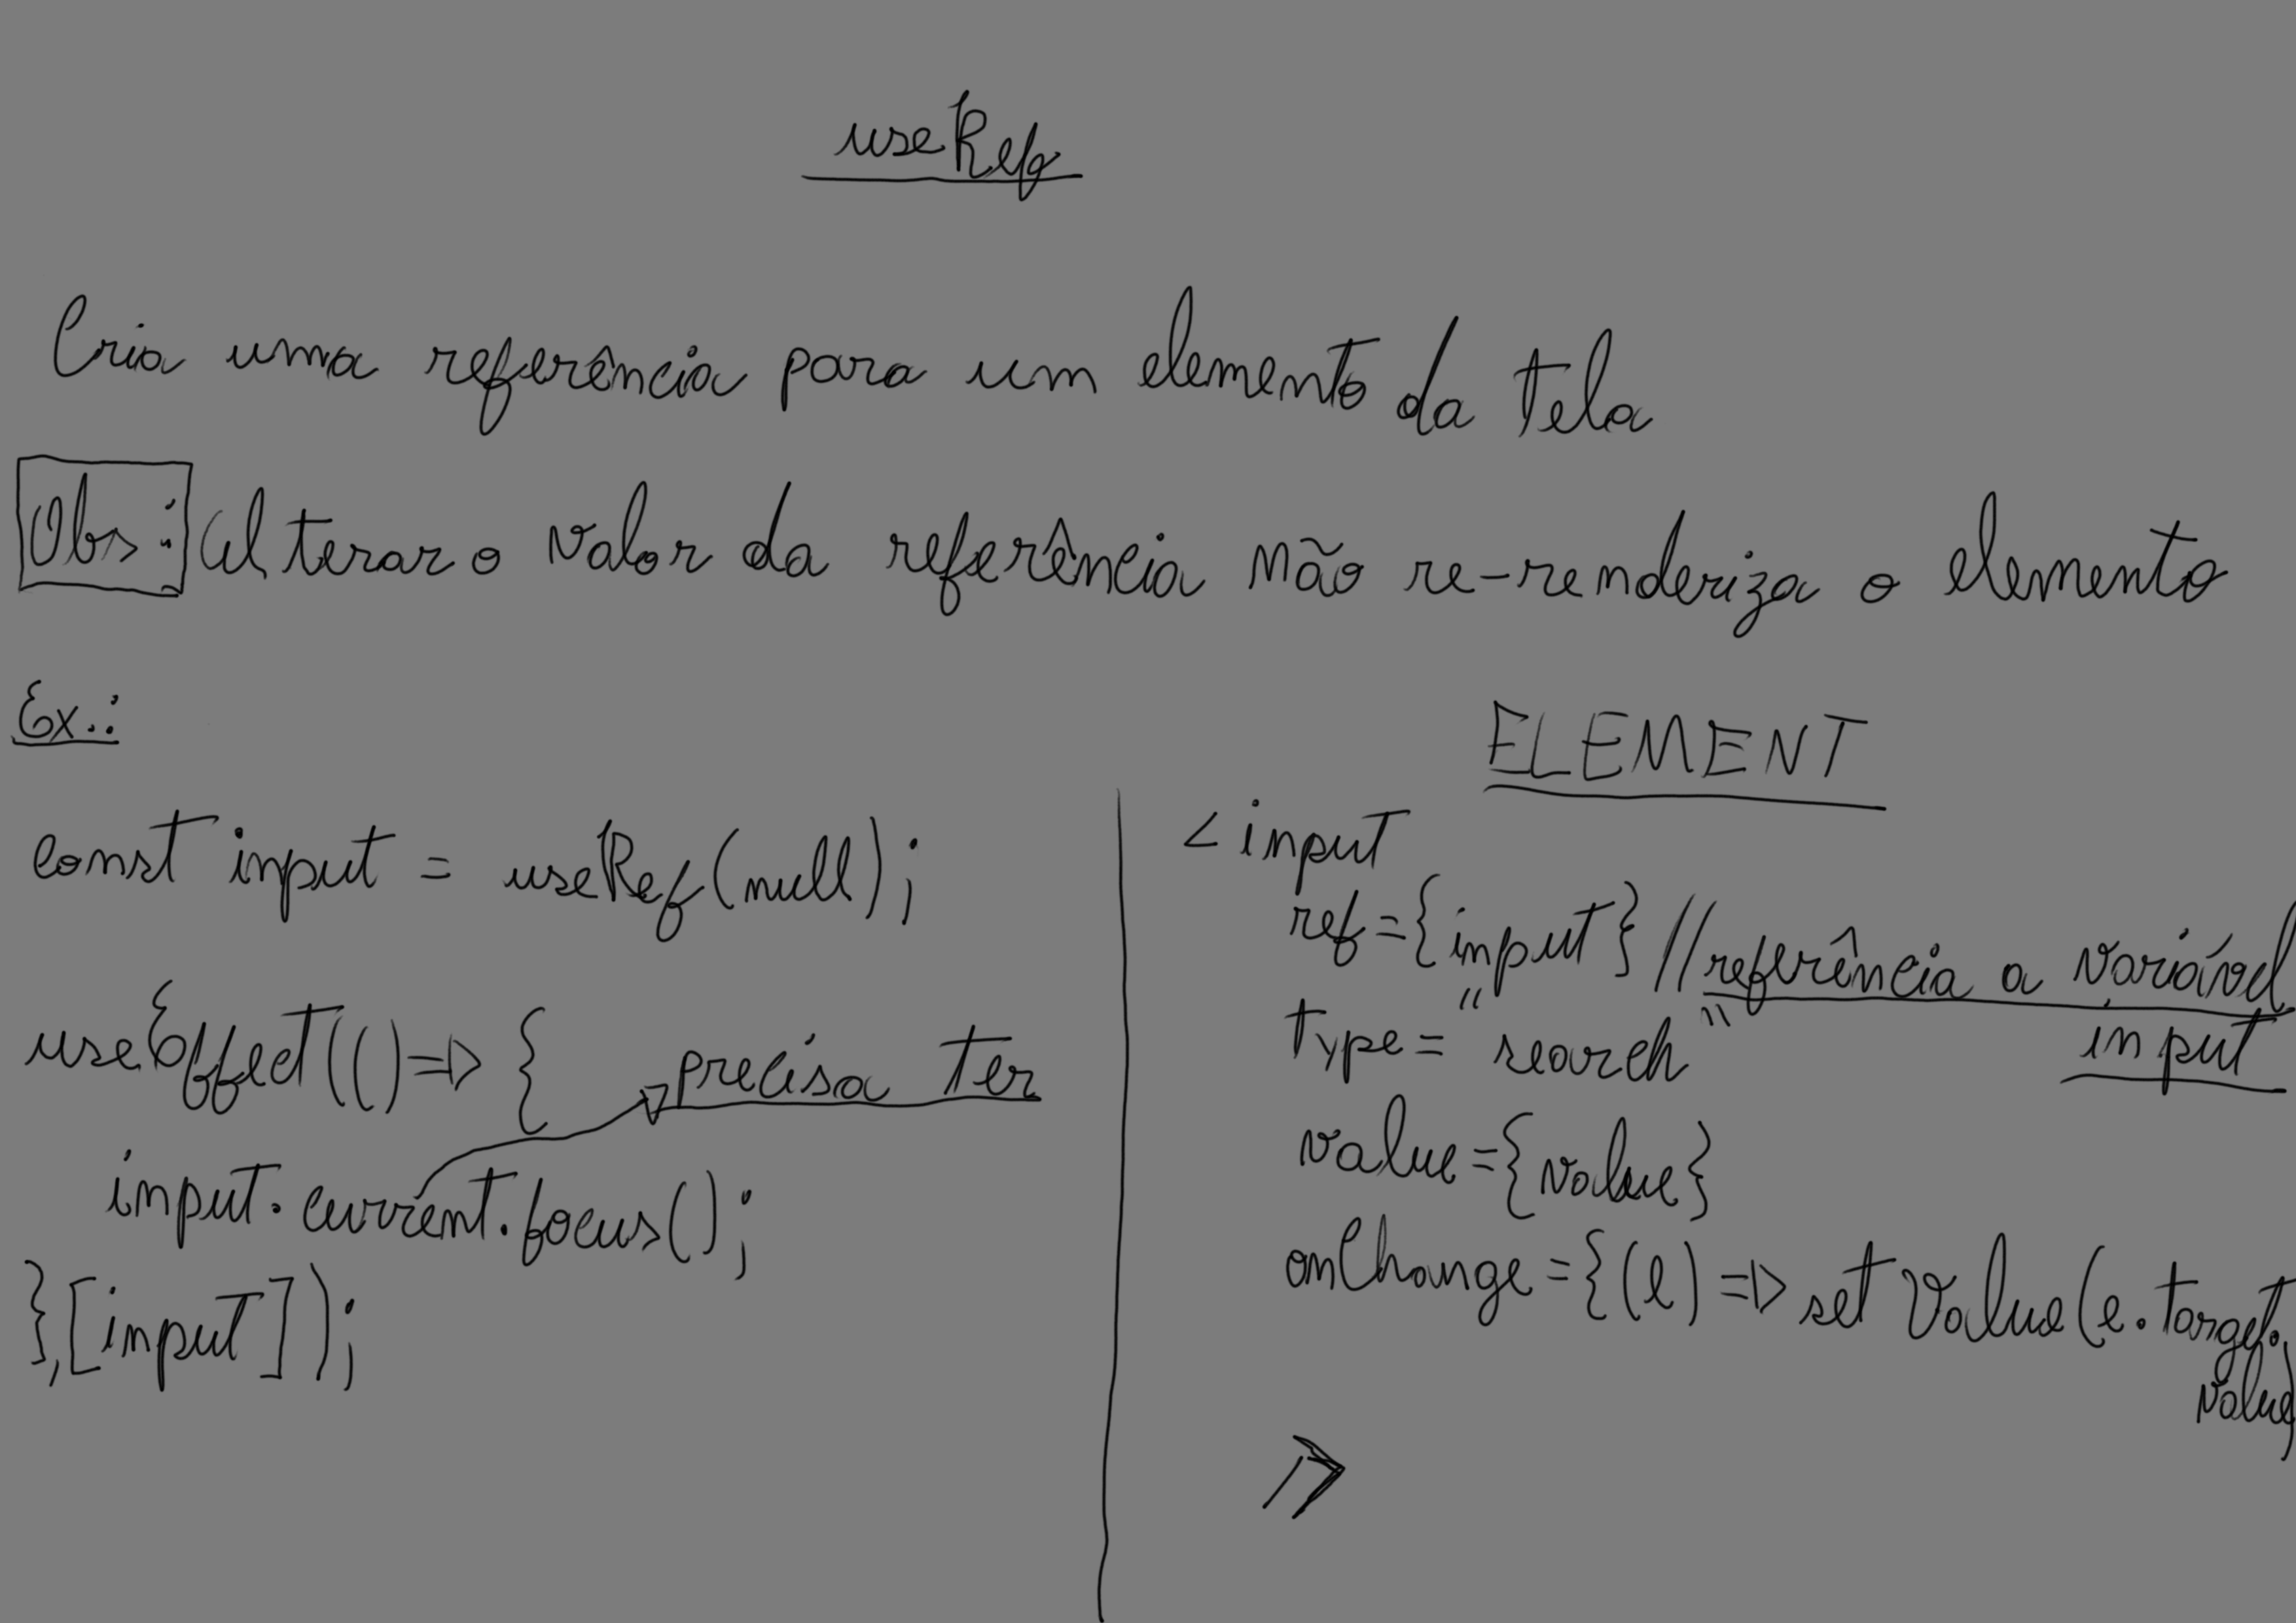 useRef
Cria uma referência para um elemento da tela
Obs: Alterar o valor da referência não re-renderiza o elemento
Ex.:
const input = useRef(null);
useEffect(() => {
precisa ter
input.current.focus();
},[input]);
ELEMENT
<input
ref={input} //referência a variável
input
type="search"
value={value}
onChange={(e) => setValue(e.target.
value)
/>